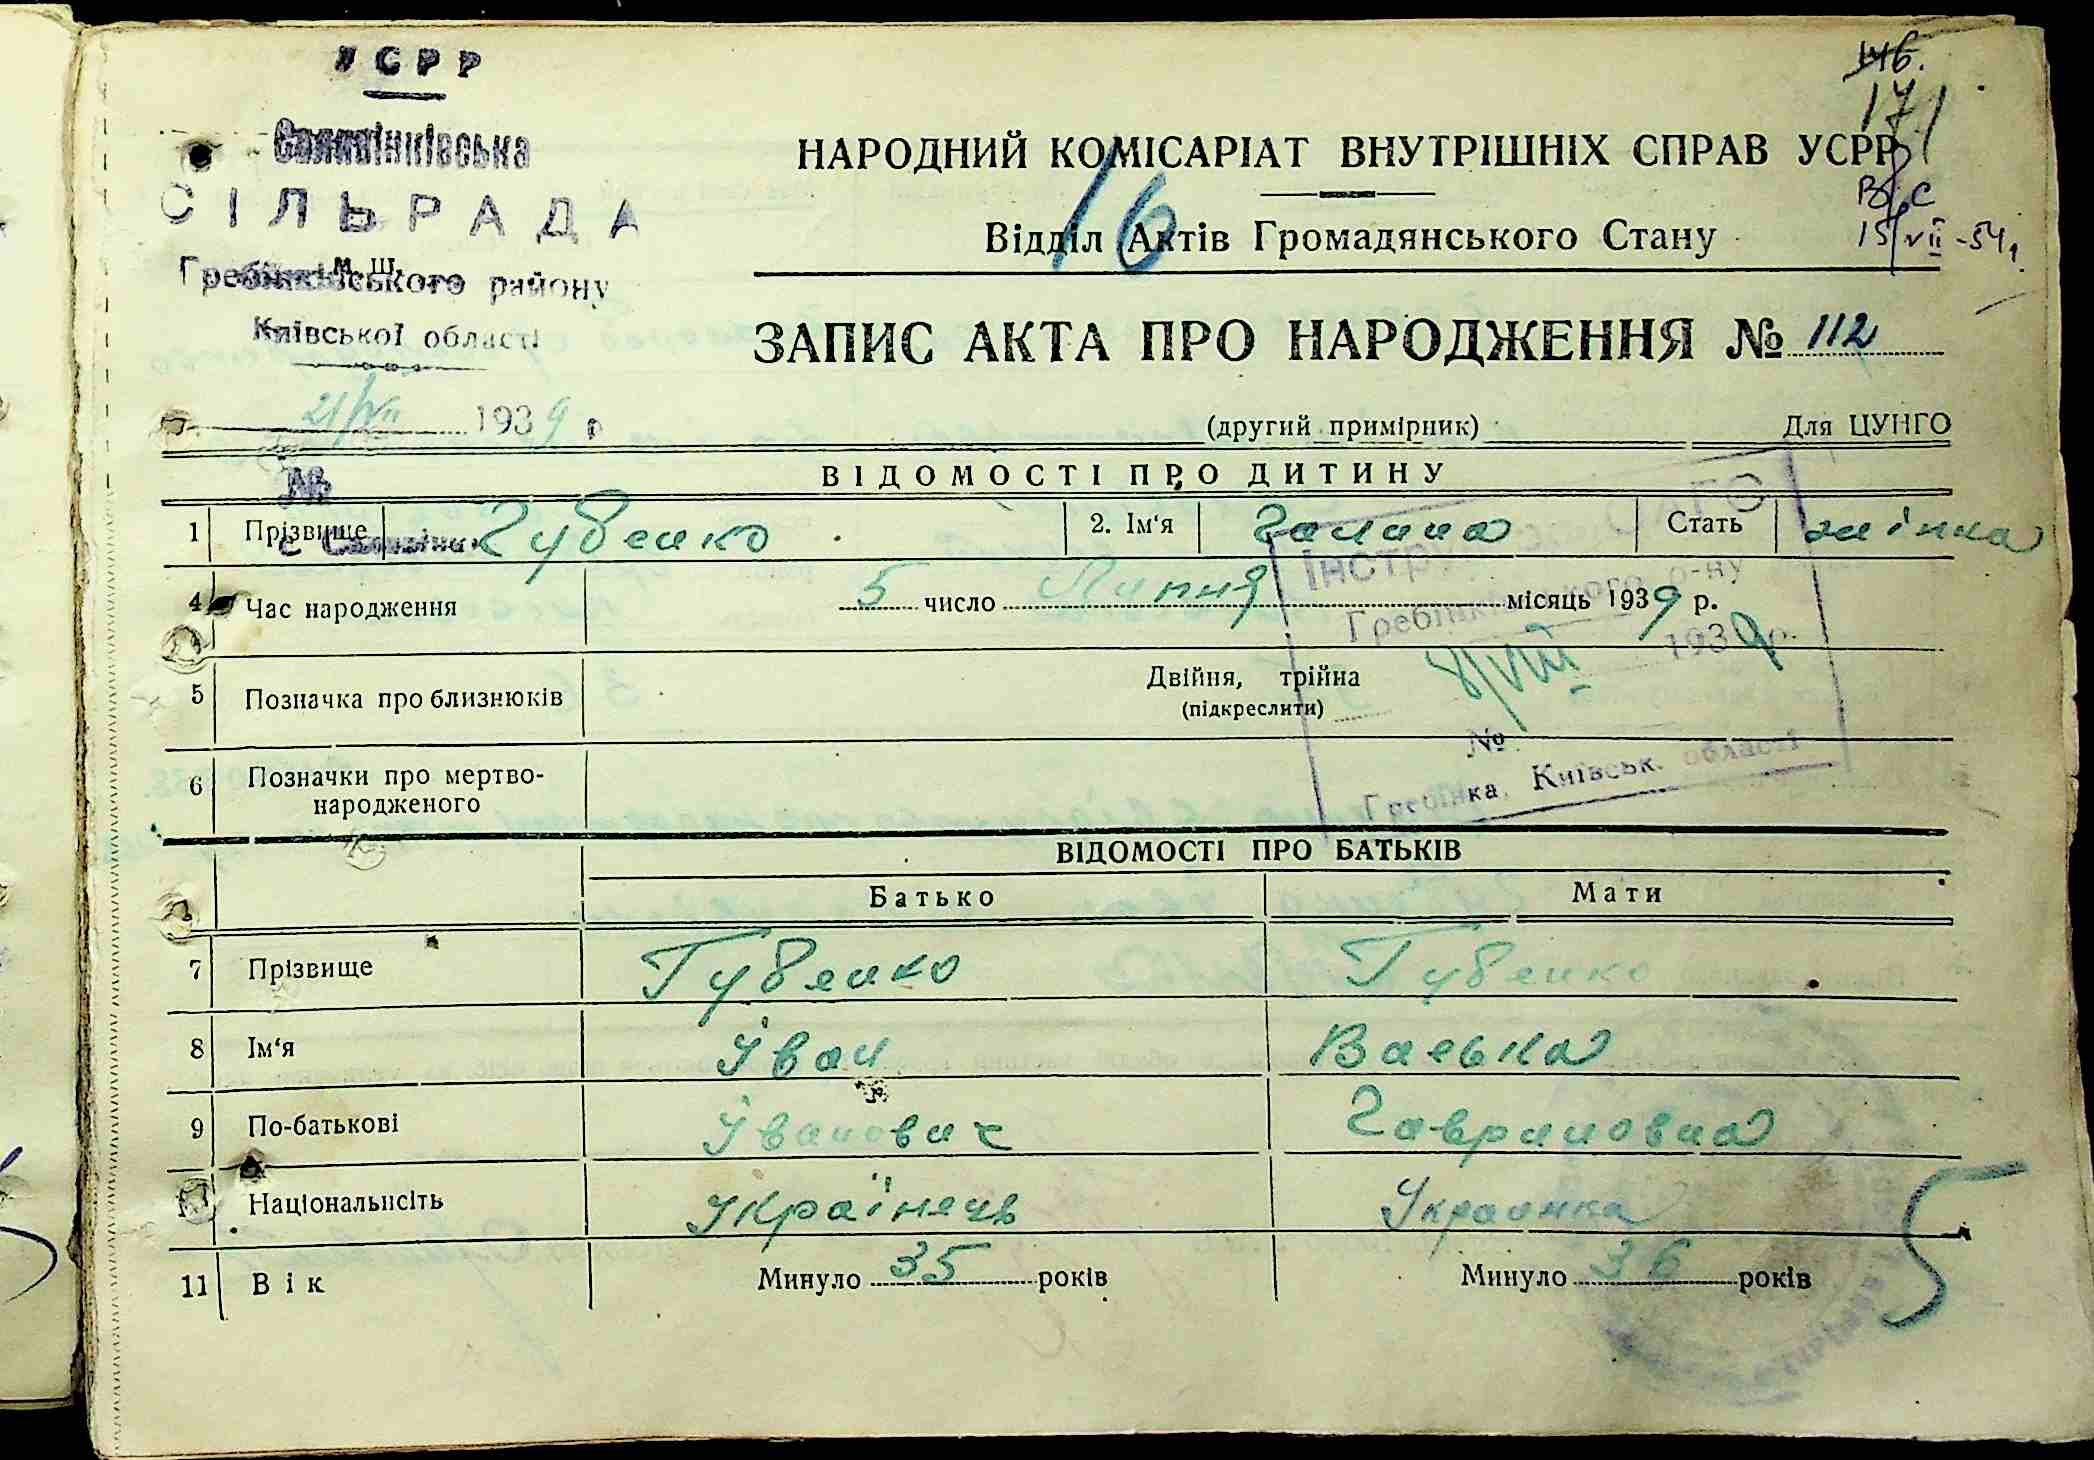 УСРР
Саливінківська
СІЛЬРАДА
м. ш.
Гребінківського району
Київської області
21/VII 1939 р
№
с
146.
171
В/С
15/VII-54 р.
НАРОДНИЙ КОМІСАРІАТ ВНУТРІШНІХ СПРАВ УСРР
16
Відділ Актів Громадянського Стану
ЗАПИС АКТА ПРО НАРОДЖЕННЯ № 112
(другий примірник) Для ЦУНГО
ВІДОМОСТІ ПРО ДИТИНУ
1 Прізвище Губенко 2. Ім‘я Галина Стать жінка
4 Час народження 5 число Липня місяць 1939 р.
5 Позначка про близнюків Двійня, трійна
(підкреслити)
6 Позначки про мертво-
народженого
Гребінківського р-ну
8/VIII 1939 р.
№
Гребінка, Київськ. області
ВІДОМОСТІ ПРО БАТЬКІВ
Батько Мати
7 Прізвище Губенко Губенко
8 Ім‘я Іван Васька
9 По-батькові Іванович Гавриловна
Національність Українець Украинка
11 Вік Минуло 35 років Минуло 36 років
5